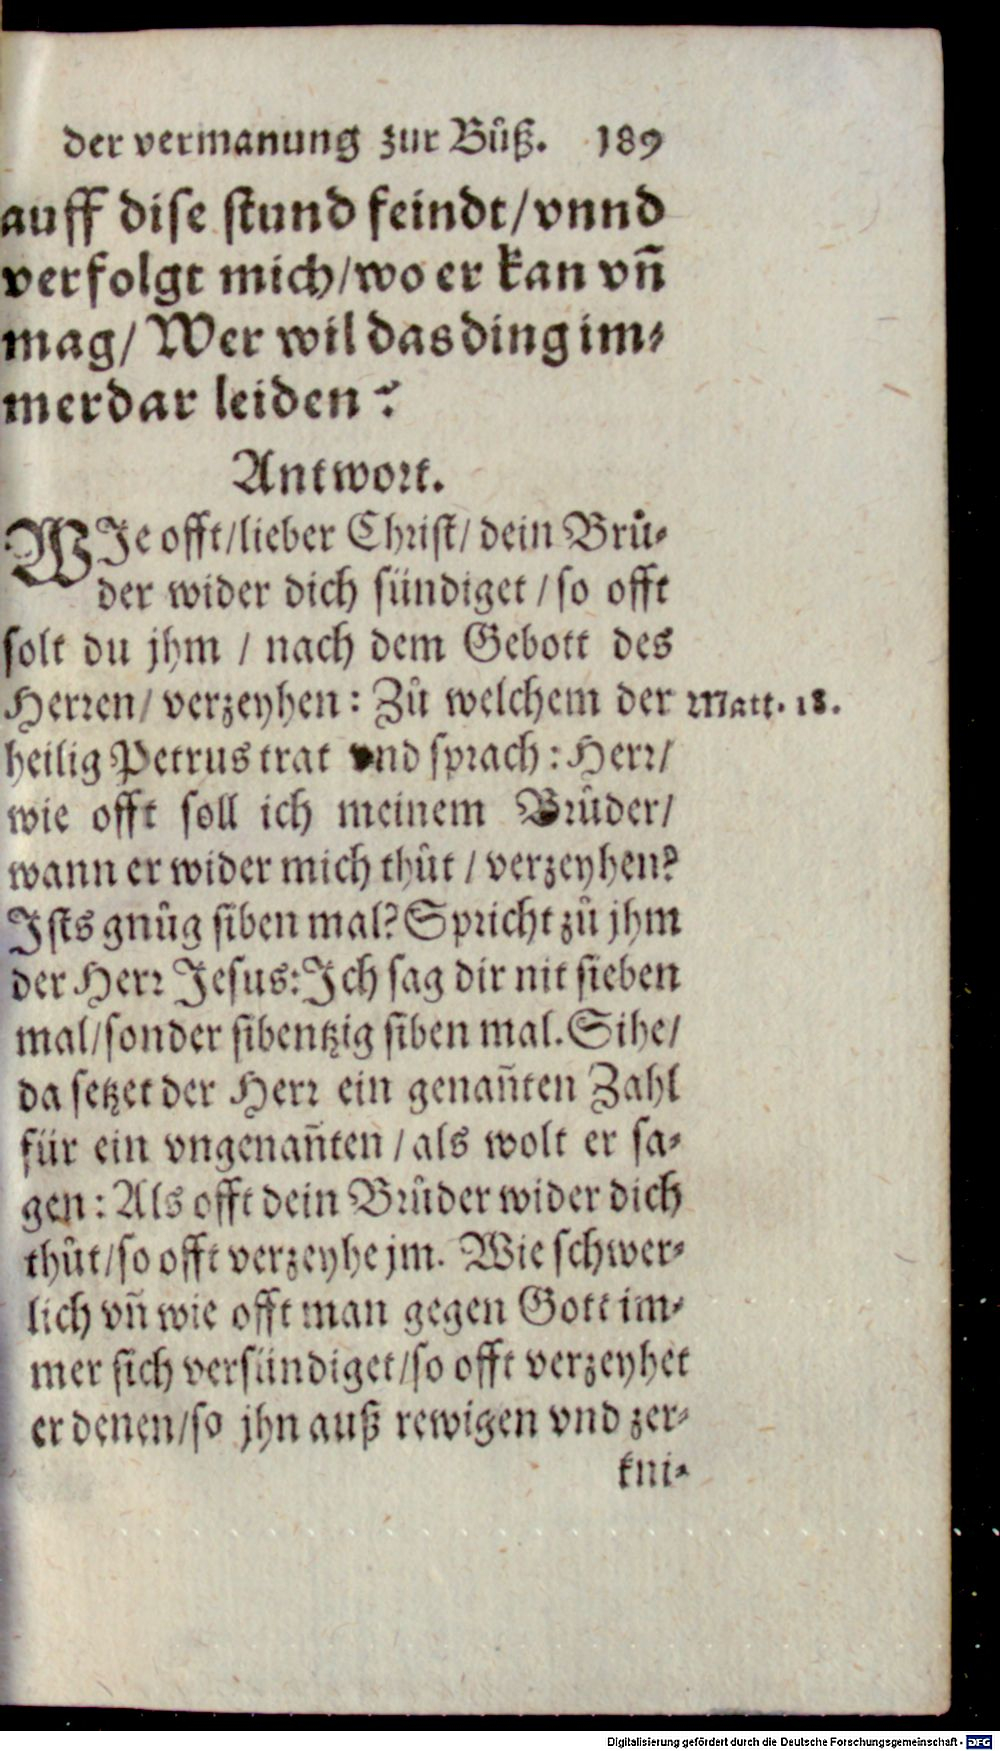 der vermanung zur Bůß. 189
auff dise stund feindt/vnnd
verfolgt mich/wo er kan vñ
mag/ Wer wil das ding im⸗
merdar leiden?
Antwort.
WIe offt/lieber Christ/ dein Brů⸗
der wider dich sündiget / so offt
solt du jhm / nach dem Gebott des
Herren/ verzeyhen: Zů welchem der Matt. 18.
heilig Petrus trat vnd sprach: Herr/
wie offt soll ich meinem Brůder/
wann er wider mich thůt / verzeyhen?
Ists gnůg siben mal? Spricht zů jhm
der Herr Jesus: Ich sag dir nit sieben
mal/sonder sibentzig siben mal. Sihe/
da setzet der Herr ein genañten Zahl
für ein vngenañten / als wolt er sa⸗
gen: Als offt dein Brůder wider dich
thůt/so offt verzeyhe jm. Wie schwer⸗
lich vñ wie offt man gegen Gott im⸗
mer sich versündiget/so offt verzeyhet
er denen/so jhn auß rewigen vnd zer⸗
kni⸗
Digitalisierung gefördert durch die Deutsche Forschungsgemeinschaft - DFG